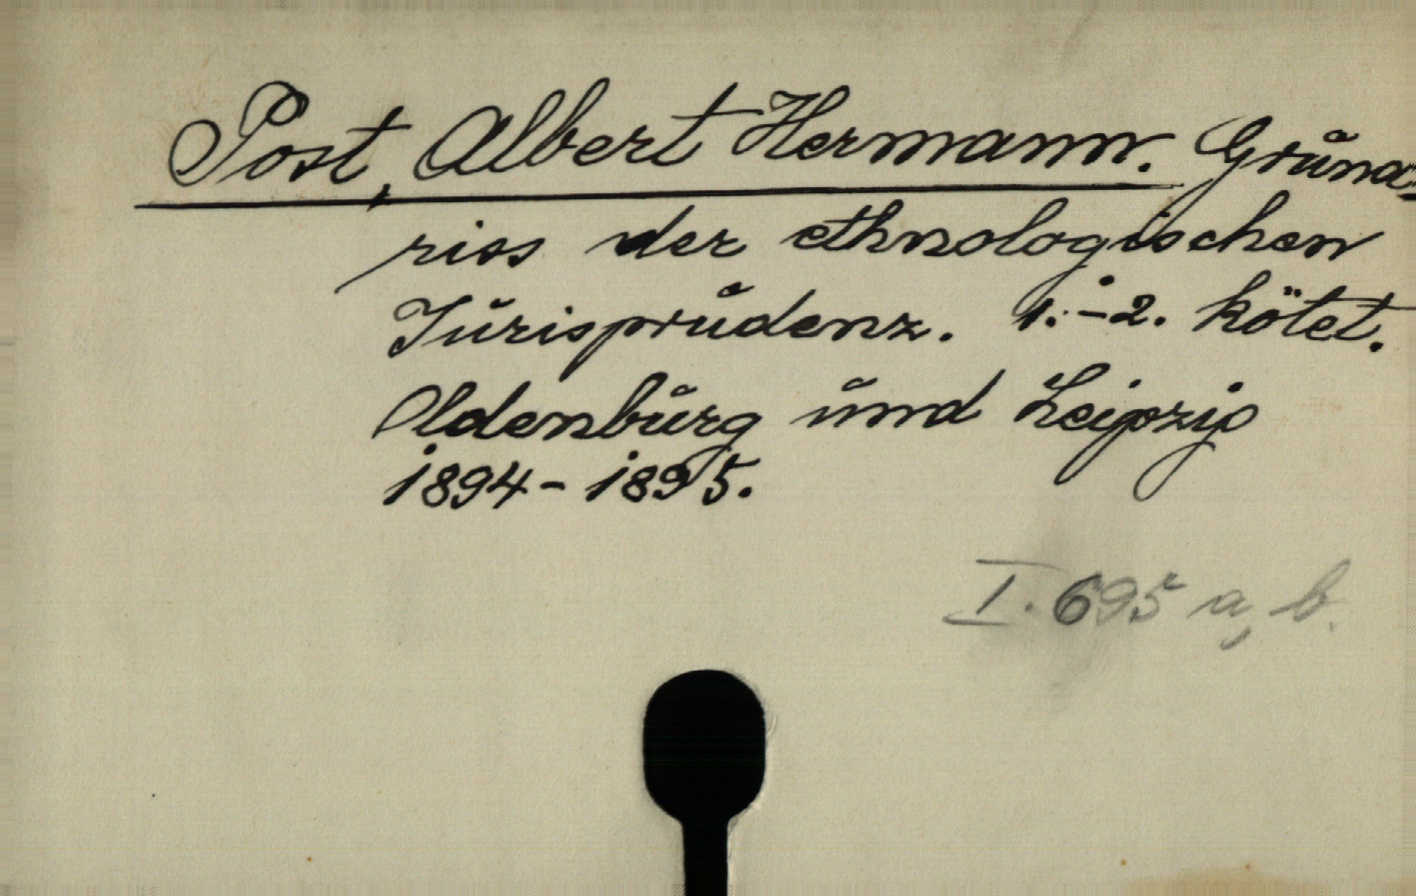 Post, Albert Hermann. Grund=
riss der ethnologischen
Jurisprudenz. 1.-2. kötet.
Oldenburg und Leipzig
1894-1895.
I. 695 a, b.